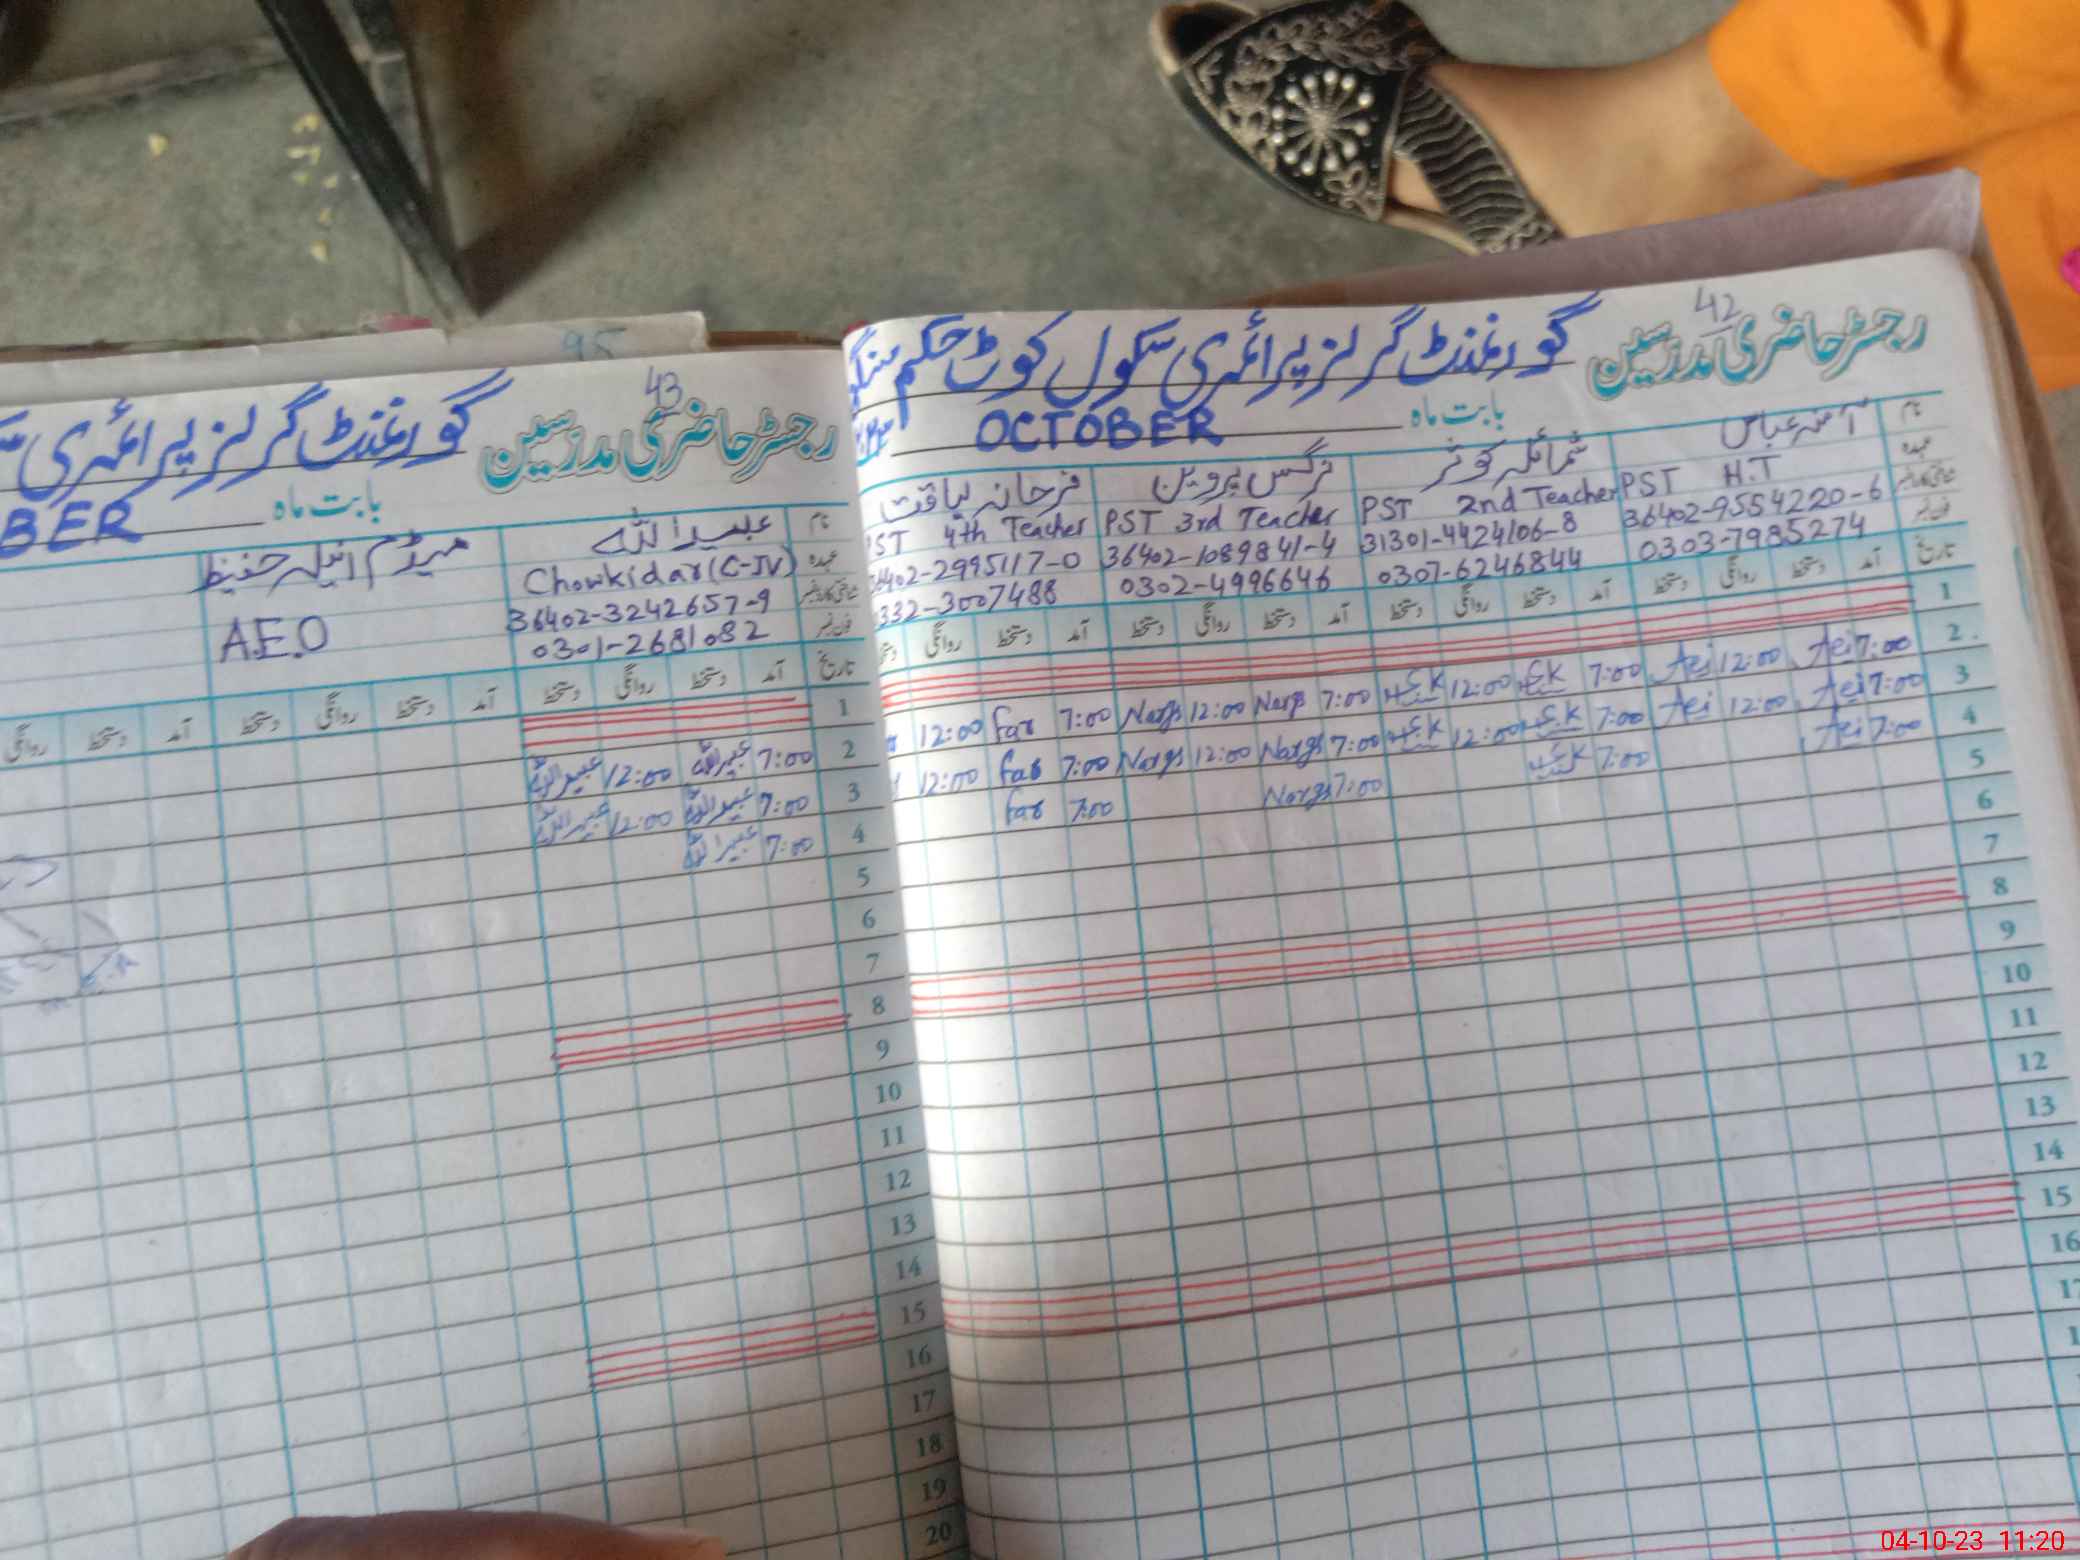 42
رجسٹر حاضری مدرسین
گورنمنٹ گرلز پرائمری سکول کوٹ حکم سنگھ
بابت ماہ OCTOBER
نام آمنہ عباس شمائلہ کوثر نرگس پروین فرحانہ لیاقت
عہدہ PST H.T PST 2nd Teacher PST 3rd Teacher 4th Teacher
36402-9554220-6 31301-4424106-8 36402-1089841-4 402-2995117-0
0303-7985274 0307-6246844 0302-4996646 332-3007488
تاریخ آمد دستخط روانگی دستخط آمد دستخط روانگی دستخط آمد دستخط روانگی دستخط آمد دستخط روانگی
1
2 7:00 Aei 12:00 Aei 7:00 S.K 12:00 S.K 7:00 Nargs 12:00 Nargs 7:00 far 12:00
3 7:00 Aei 12:00 Aei 7:00 S.K 12:00 S.K 7:00 Nargs 12:00 Nargs 7:00 far 12:00
4 7:00 Aei 7:00 7:00 Nargs 7:00 far
5
6
7
8
9
10
11
12
13
14
15
16
43
رجسٹر حاضری مدرسین
گورنمنٹ گرلز پرائمری
بابت ماہ BER
نام عبید اللہ میڈم انیلہ حفیظ
عہدہ Chowkidar (C-IV) A.E.O
36402-3242657-9
0301-2681082
تاریخ آمد دستخط روانگی دستخط آمد دستخط روانگی دستخط آمد دستخط روانگی
1
2 7:00 عبید اللہ 12:00 عبید اللہ
3 7:00 عبید اللہ 12:00 عبید اللہ
4 7:00 عبید اللہ
5
6
7
8
9
10
11
12
13
14
15
16
17
18
19
20
95
04-10-23 11:20